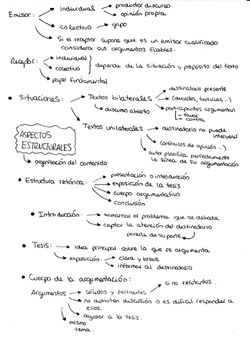 Emisor: individual → productor discurso
→ opinión propia
colectivo → grupo
Si el receptor supone que es un emisor cualificado
considera sus argumentos fiables.
Receptor: individual
colectivo } depende de la situación y propósito del texto
papel fundamental
• Situaciones: Textos bilaterales → destinatario presente
(debates, tertulias...)
discurso abierto
participantes argumentan
a favor
contra
Textos unilaterales → destinatario no puede
intervenir
(artículos de opinión...)
autor planifica perfectamente
la línea de su argumentación
ASPECTOS
ESTRUCTURALES
→ organización del contenido
• Estructura retórica: presentación o introducción
exposición de la tesis
cuerpo argumentativo
conclusión
• Introducción: → enmarcar el problema que se debate
captar la atención del destinatario
ponerla de su parte
• Tesis: → idea principal sobre la que se argumenta
exposición → clara y breve
informar al destinatario
• Cuerpo de la argumentación:
Argumentos → sólidos y pertinentes
→ no admiten discusión o es difícil responder a
ellos.
→ apoyar a la tesis.
mismo
tema.